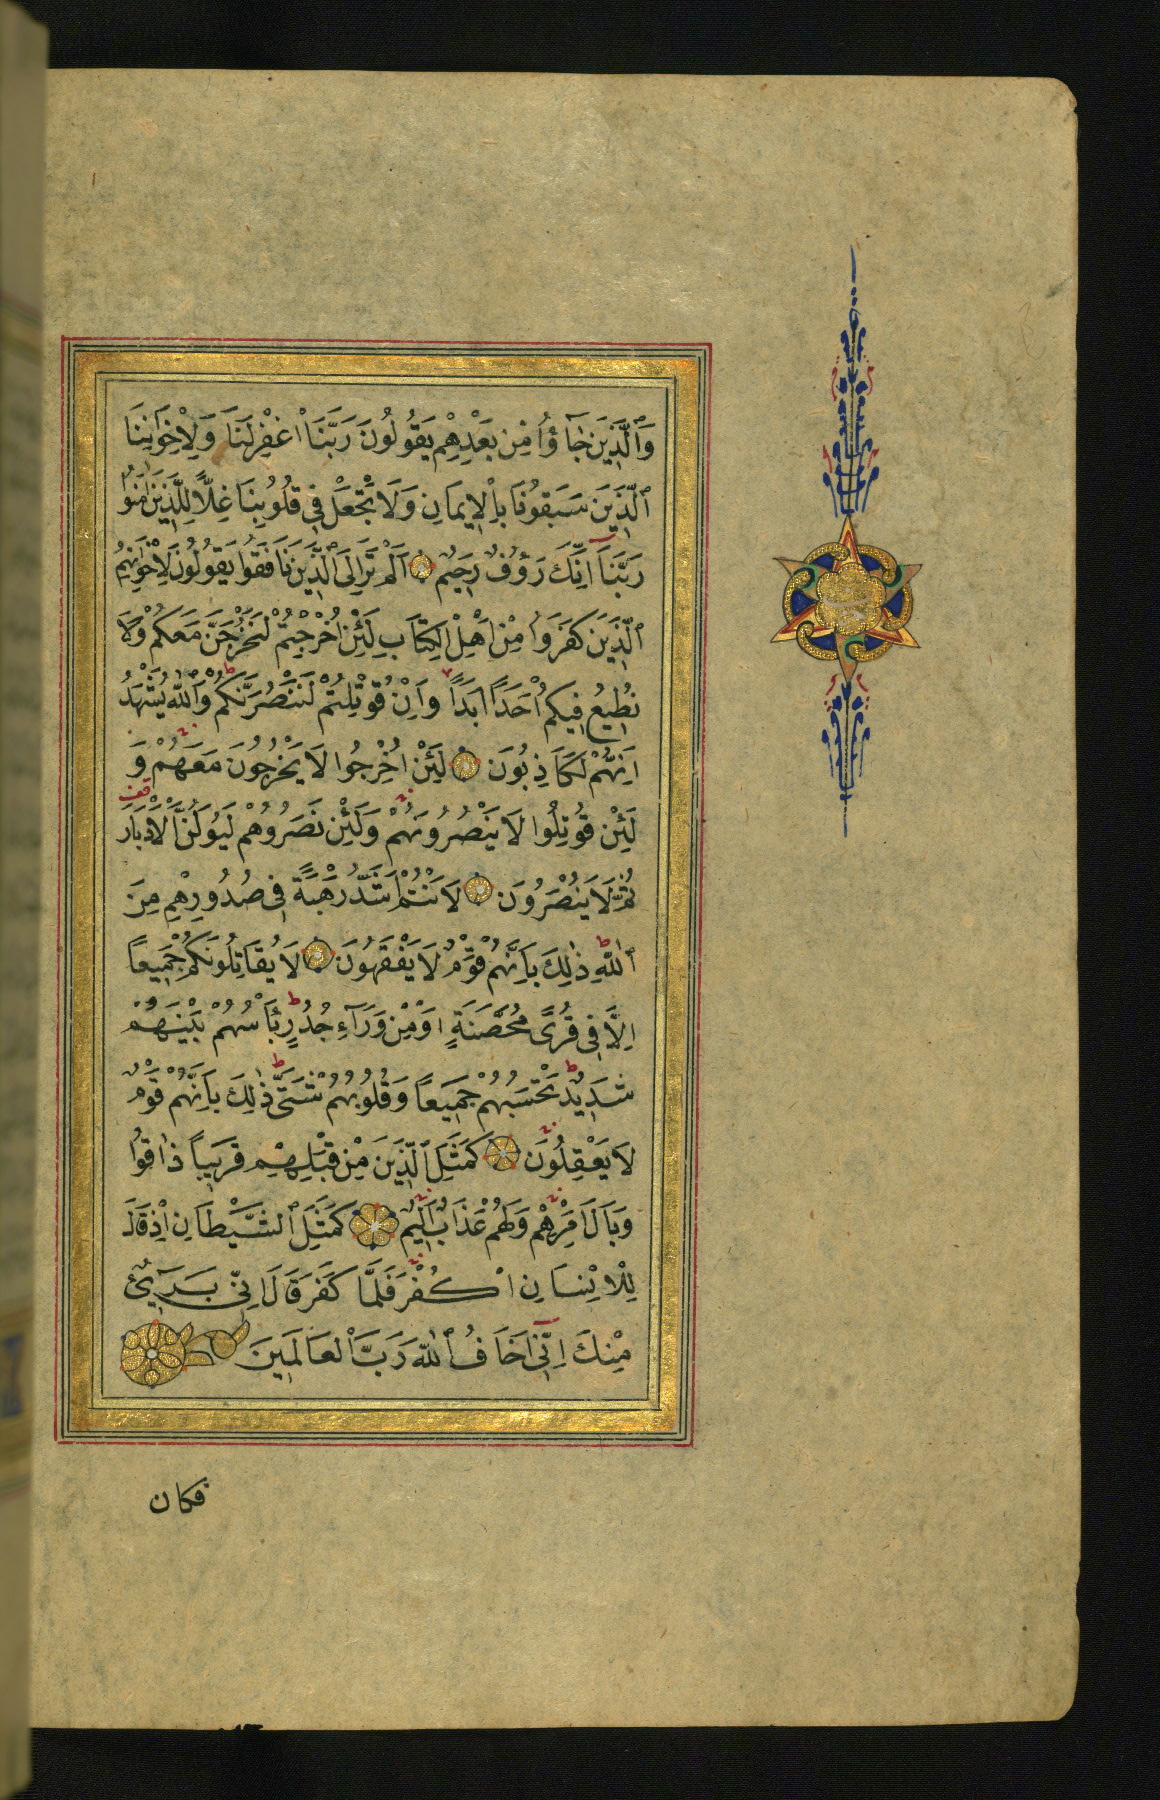 وَٱلَّذِينَ جَآؤُا مِن بَعْدِهِمْ يَقُولُونَ رَبَّنَا اغْفِرْلَنَا وَلِإِخْوَانِنَا
ٱلَّذِينَ سَبَقُونَا بِالْإِيمَانِ وَلَا تَجْعَلْ فِي قُلُوبِنَا غِلًّا لِلَّذِينَ اٰمَنُوا
رَبَّنَآ اِنَّكَ رَؤُفٌ رَحِيمٌ اَلَمْ تَرَ اِلَى ٱلَّذِينَ نَافَقُوا يَقُولُونَ لِاِخْوَانِهِمُ
ٱلَّذِينَ كَفَرُوا مِنْ اَهْلِ الْكِتَابِ لَئِنْ اُخْرِجْتُمْ لَنَخْرُجَنَّ مَعَكُمْ وَلَا
نُطِيعُ فِيكُمْ اَحَدًا اَبَدًا وَاِنْ قُوتِلْتُمْ لَنَنْصُرَنَّكُمْ وَٱللّٰهُ يَشْهَدُ
اِنَّهُمْ لَكَاذِبُونَ لَئِنْ اُخْرِجُوا لَا يَخْرُجُونَ مَعَهُمْ وَ
لَئِنْ قُوتِلُوا لَا يَنْصُرُونَهُمْ وَلَئِنْ نَصَرُوهُمْ لَيُوَلُّنَّ الْاَدْبَارَ
ثُمَّ لَا يُنْصَرُونَ لَاَنْتُمْ اَشَدُّ رَهْبَةً فِي صُدُورِهِمْ مِنَ
ٱللّٰهِ ذٰلِكَ بِاَنَّهُمْ قَوْمٌ لَا يَفْقَهُونَ لَا يُقَاتِلُونَكُمْ جَمِيعًا
اِلَّا فِي قُرًى مُحَصَّنَةٍ اَوْ مِنْ وَرَآءِ جُدُرٍ بَأْسُهُمْ بَيْنَهُمْ
شَدِيدٌ تَحْسَبُهُمْ جَمِيعًا وَقُلُوبُهُمْ شَتَّى ذٰلِكَ بِاَنَّهُمْ قَوْمٌ
لَا يَعْقِلُونَ كَمَثَلِ ٱلَّذِينَ مِنْ قَبْلِهِمْ قَرِيبًا ذَاقُوا
وَبَالَ اَمْرِهِمْ وَلَهُمْ عَذَابٌ اَلِيمٌ كَمَثَلِ ٱلشَّيْطَانِ اِذْ قَالَ
لِلْاِنْسَانِ اكْفُرْ فَلَمَّا كَفَرَ قَالَ اِنِّي بَرِيٓئٌ
مِنْكَ اِنِّيٓ اَخَافُ ٱللّٰهَ رَبَّ الْعَالَمِينَ
فكان